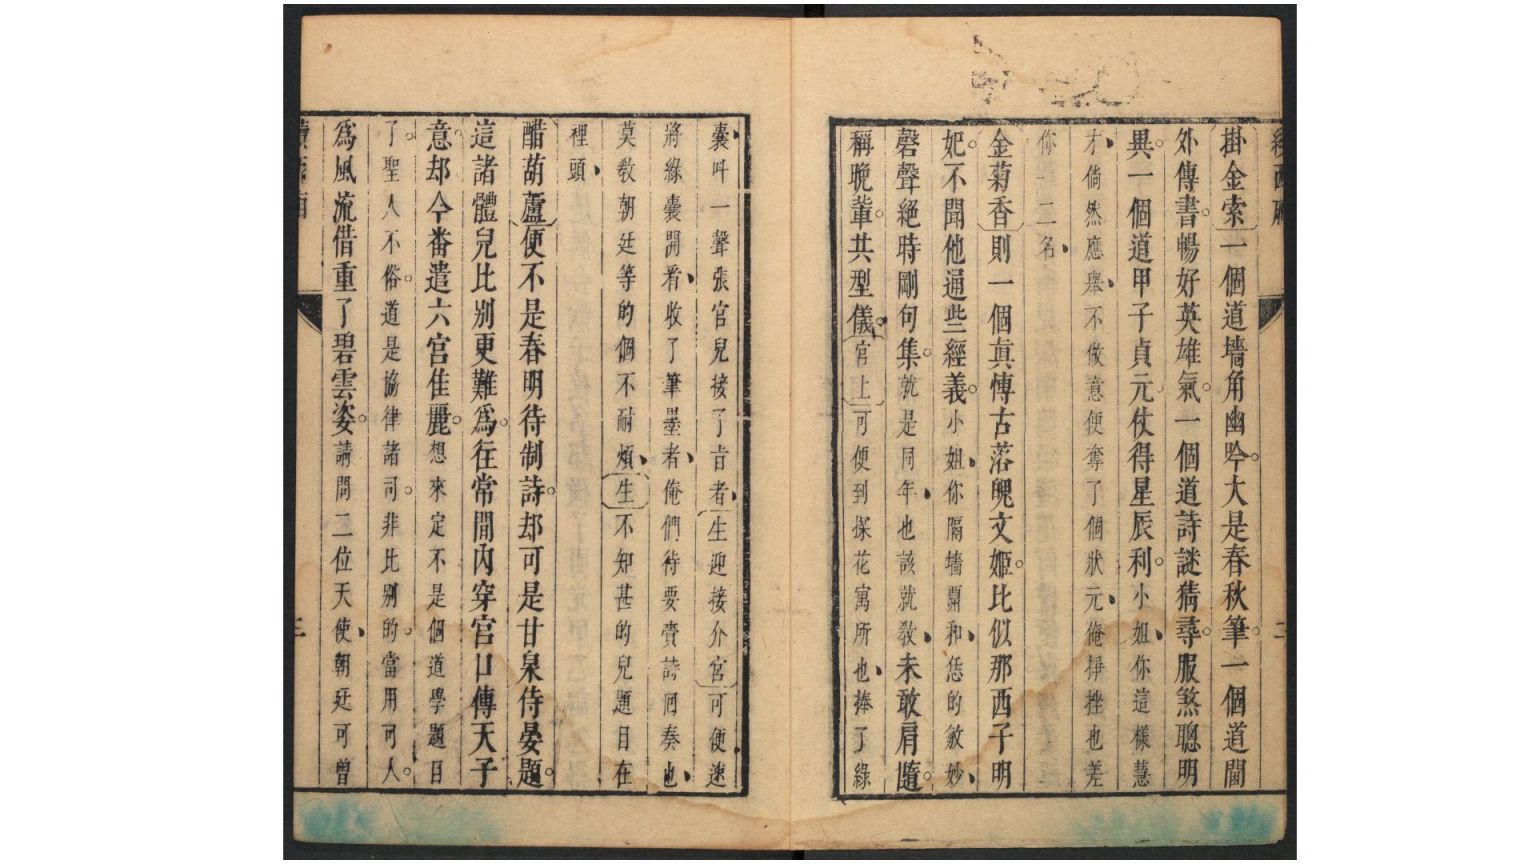 掛金索一個道墻角幽吟大是春秋筆一個道閫
外傳書暢好英雄氣一個道詩謎猜尋服煞聰明
異一個道甲子貞元仗得星辰利小姐你這樣慧
才倘然應舉不做意便奪了個狀元俺掙挫也差
你一二名
金菊香則一個眞博古落魄文姬比似那西子明
妃不聞他通些經義小姐你隔墻覇和恁的敏妙
磬聲絕時剛句集就是同年也該就敎未敢肩隨
稱晚輩共型儀官上可便到探花寓所也捧了綠
囊呌一聲張官兒接了㫖者生迎接介宮可便速
將綠囊開看收了筆墨者俺們待要賫詩囘奏也
莫敎朝廷等的個不耐煩生不知甚的兒題目在
裡頭
醋葫蘆便不是春明待制詩却可是甘泉侍晏題
這諸體兒比别更難爲往常間內穿宮口傳天子
意却今番遣六宮佳麗想來定不是個道學題目
了聖人不俗道是協律諸司非比别的當用可人
爲風流借重了碧雲姿請問二位天使朝廷可曾